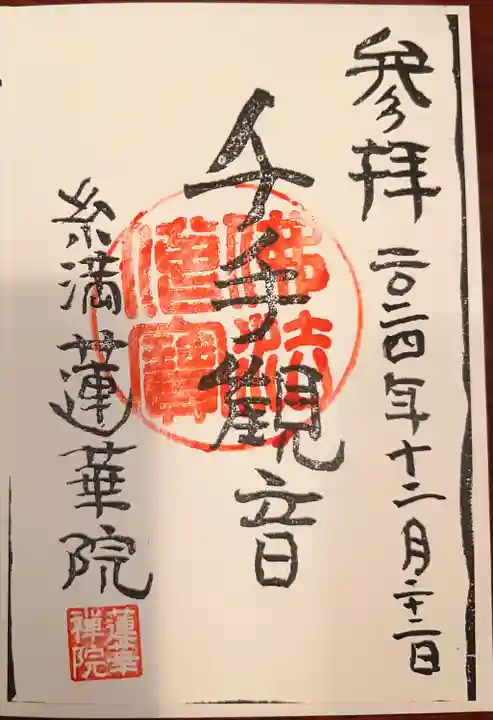 参拝
二〇二四年十二月二十二日
千手觀音
佛法僧寶
糸満蓮華院
蓮華禅院